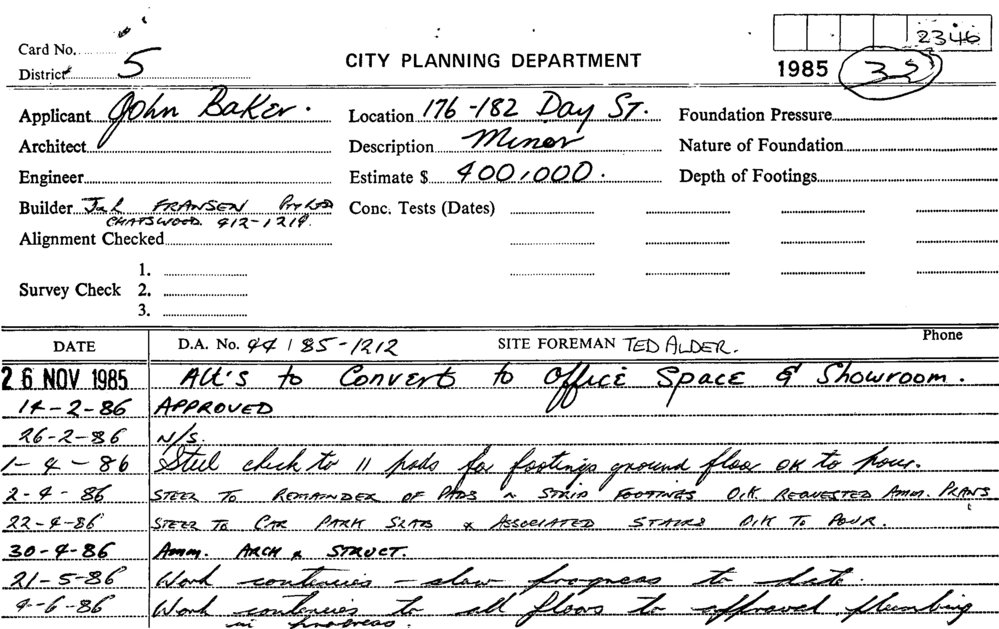 2346
Card No.
District 5
CITY PLANNING DEPARTMENT
1985 35
Applicant John Baker.
Location 176-182 Day St.
Foundation Pressure
Architect
Description Minor
Nature of Foundation
Engineer
Estimate $ 400,000.
Depth of Footings
Builder J & L FRANSEN Pty Ltd
CHATSWOOD. 412-1219.
Conc. Tests (Dates)
Alignment Checked
Survey Check
1.
2.
3.
DATE D.A. No. 44/85-1212 SITE FOREMAN TED ALDER. Phone
26 NOV 1985 Alt's to Convert to Office Space & Showroom.
14-2-86 APPROVED
26-2-86 N/S.
1-4-86 Steel check to 11 pads for footings ground floor OK to pour.
2-4-86 STEEL TO REMAINDER OF PADS & STRIP FOOTINGS O.K. REQUESTED AMM. PLANS
22-4-86 STEEL TO CAR PARK SLAB & ASSOCIATED STAIRS O/K TO POUR.
30-4-86 AMM. ARCH & STRUCT.
21-5-86 Work continues - slow progress to date.
4-6-86 Work continues to all floors to approval plumbing
in progress.